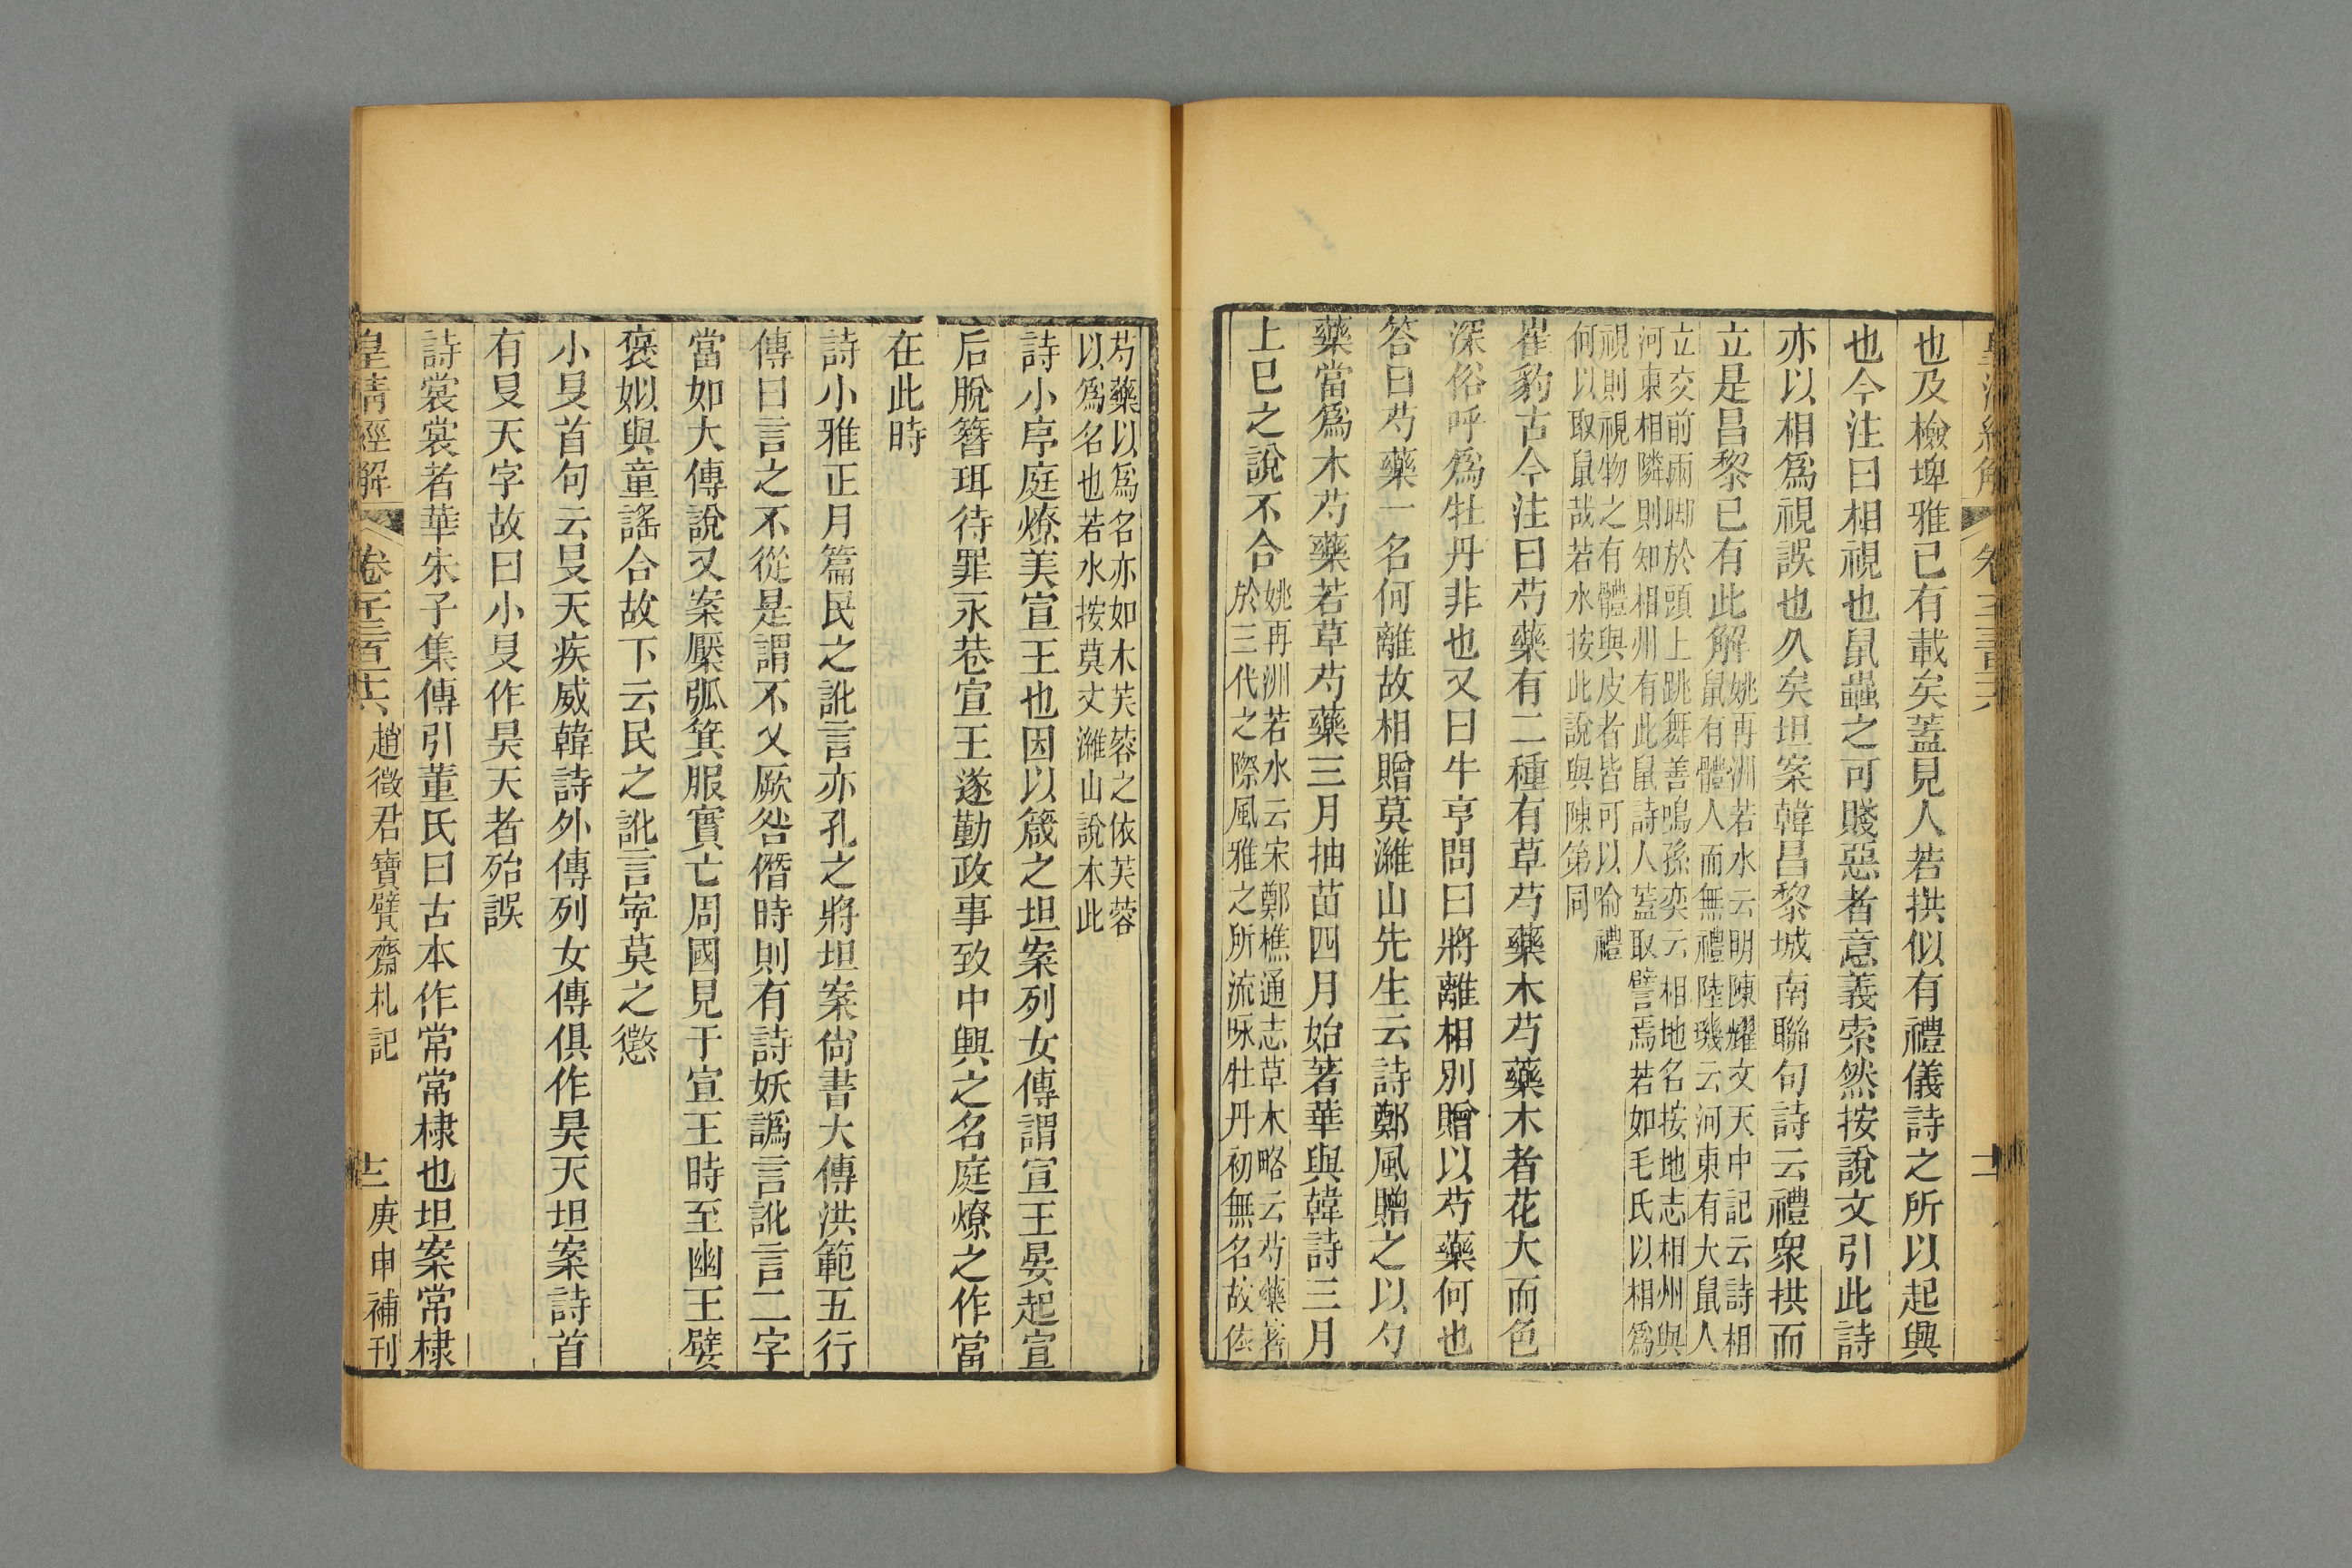 也及檢埤雅已有載矣蓋見人若拱似有禮儀詩之所以起興
也今注曰相視也鼠蟲之可賤惡者意義索然按說文引此詩
亦以相爲視誤也久矣坦案韓昌黎城南聯句詩云禮衆拱而
立是昌黎已有此解
姚再洲若水云明陳耀文天中記云詩相
鼠有體人而無禮陸璣云河東有大鼠人
立交前兩脚於頭上跳舞善鳴孫奕云相地名按地志相州與
河東相隣則知相州有此鼠詩人蓋取譬焉若如毛氏以相爲
視則視物之有體與皮者皆可以喻禮
何以取鼠哉若水按此說與陳第同
崔豹古今注曰芍藥有二種有草芍藥木芍藥木者花大而色
深俗呼爲牡丹非也又曰牛亨問曰將離相別贈以芍藥何也
答曰芍藥一名何離故相贈莫濰山先生云詩鄭風贈之以勺
藥當爲木芍藥若草芍藥三月抽苗四月始著華與韓詩三月
上巳之說不合
姚再洲若水云宋鄭樵通志草木略云芍藥著
於三代之際風雅之所流咏牡丹初無名故依
芍藥以爲名亦如木芙蓉之依芙蓉
以爲名也若水按莫丈濰山說本此
詩小序庭燎美宣王也因以箴之坦案列女傳謂宣王晏起宣
后脫簪珥待罪永巷宣王遂勤政事致中興之名庭燎之作當
在此時
詩小雅正月篇民之訛言亦孔之將坦案尙書大傳洪範五行
傳曰言之不從是謂不乂厥咎僭時則有詩妖譌言訛言二字
當如大傳說又案檿弧箕服實亡周國見于宣王時至幽王嬖
褒姒與童謠合故下云民之訛言寜莫之懲
小旻首句云旻天疾威韓詩外傳列女傳俱作昊天坦案詩首
有旻天字故曰小旻作昊天者殆誤
詩裳裳者華朱子集傳引董氏曰古本作常常棣也坦案常棣
皇清經解
卷一千三百十六
趙徵君寶甓齋札記
十二
庚申補刊